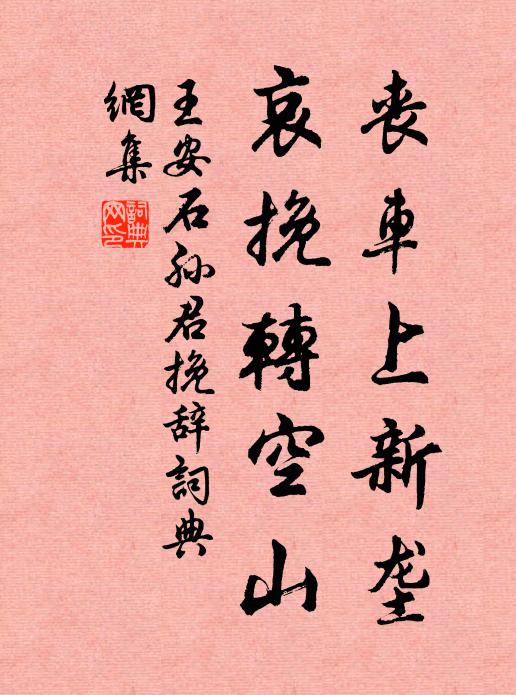 喪車上新垄
哀挽轉空山
王安石孙君挽辞詞典
網集
詞典網印